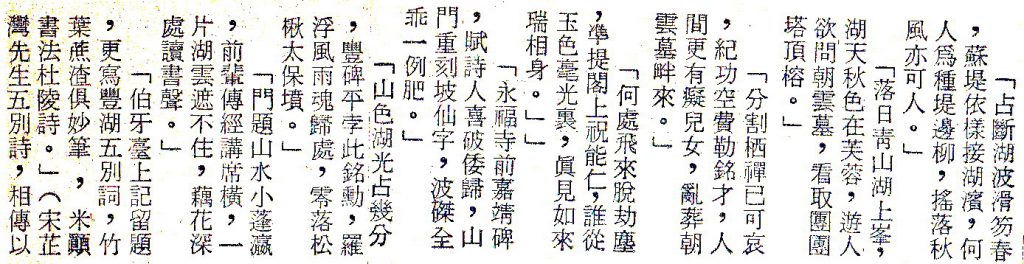 「占斷湖波滑笏春
，蘇堤依樣接湖濱，何
人爲種堤邊柳，搖落秋
風亦可人。」
「落日靑山湖上峯，
湖天秋色在芙蓉，遊人
欲問朝雲墓，看取團團
塔頂榕。」
「分割栖禪已可哀
，紀功空費勒銘才，人
間更有癡兒女，亂葬朝
雲墓畔來。」
「何處飛來脫劫塵
，準提閣上祝能仁，誰從
玉色毫光裹，眞見如來
瑞相身。」」
「永福寺前嘉靖碑
，賦詩人喜破倭歸，山
門重刻坡仙字，波磔全
乖一例肥。」
「山色湖光占幾分
，豐碑平李此銘勳，羅
浮風雨魂歸處，零落松
楸太保墳。」
「門題山水小蓬瀛
，前輩傳經講席橫，一
片湖雲遮不住，藕花深
處讀書聲。」
「伯牙臺上記留題
，更寫豐湖五別詞，竹
葉蔗渣俱妙筆，米顚
書法杜陵詩。」（宋芷
灣先生五別詩，相傳以